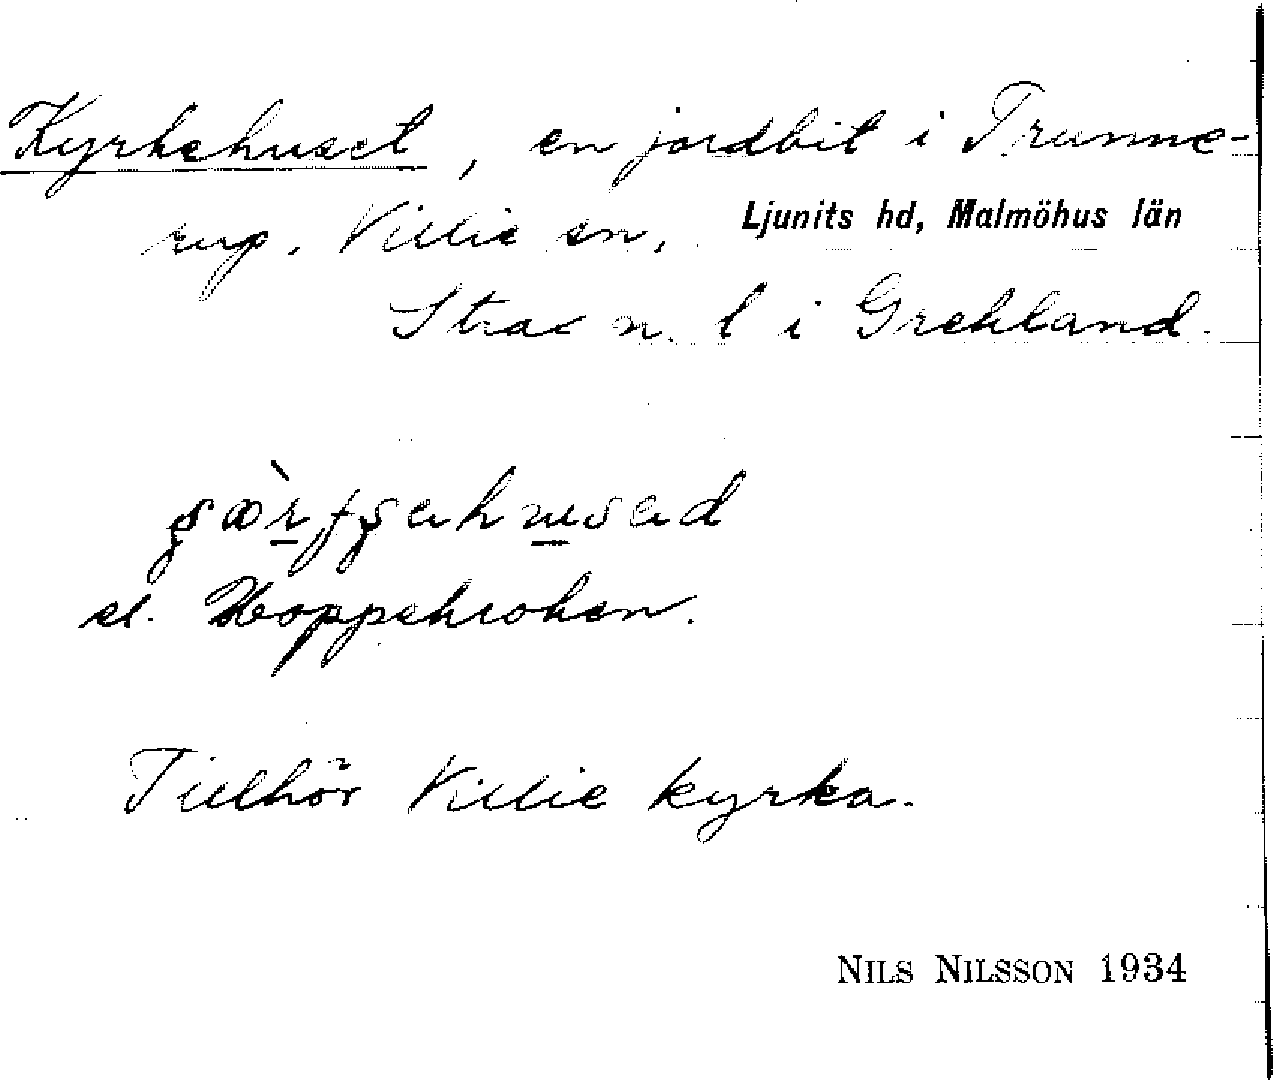 Kyrkehuset, en jordbit i Trunne-
rup, Villie sn, Ljunits hd, Malmöhus län
Strax n. l i Grekland.
el. Hoppekroken.
Tillhör Villie kyrka.
NILS NILSSON 1934